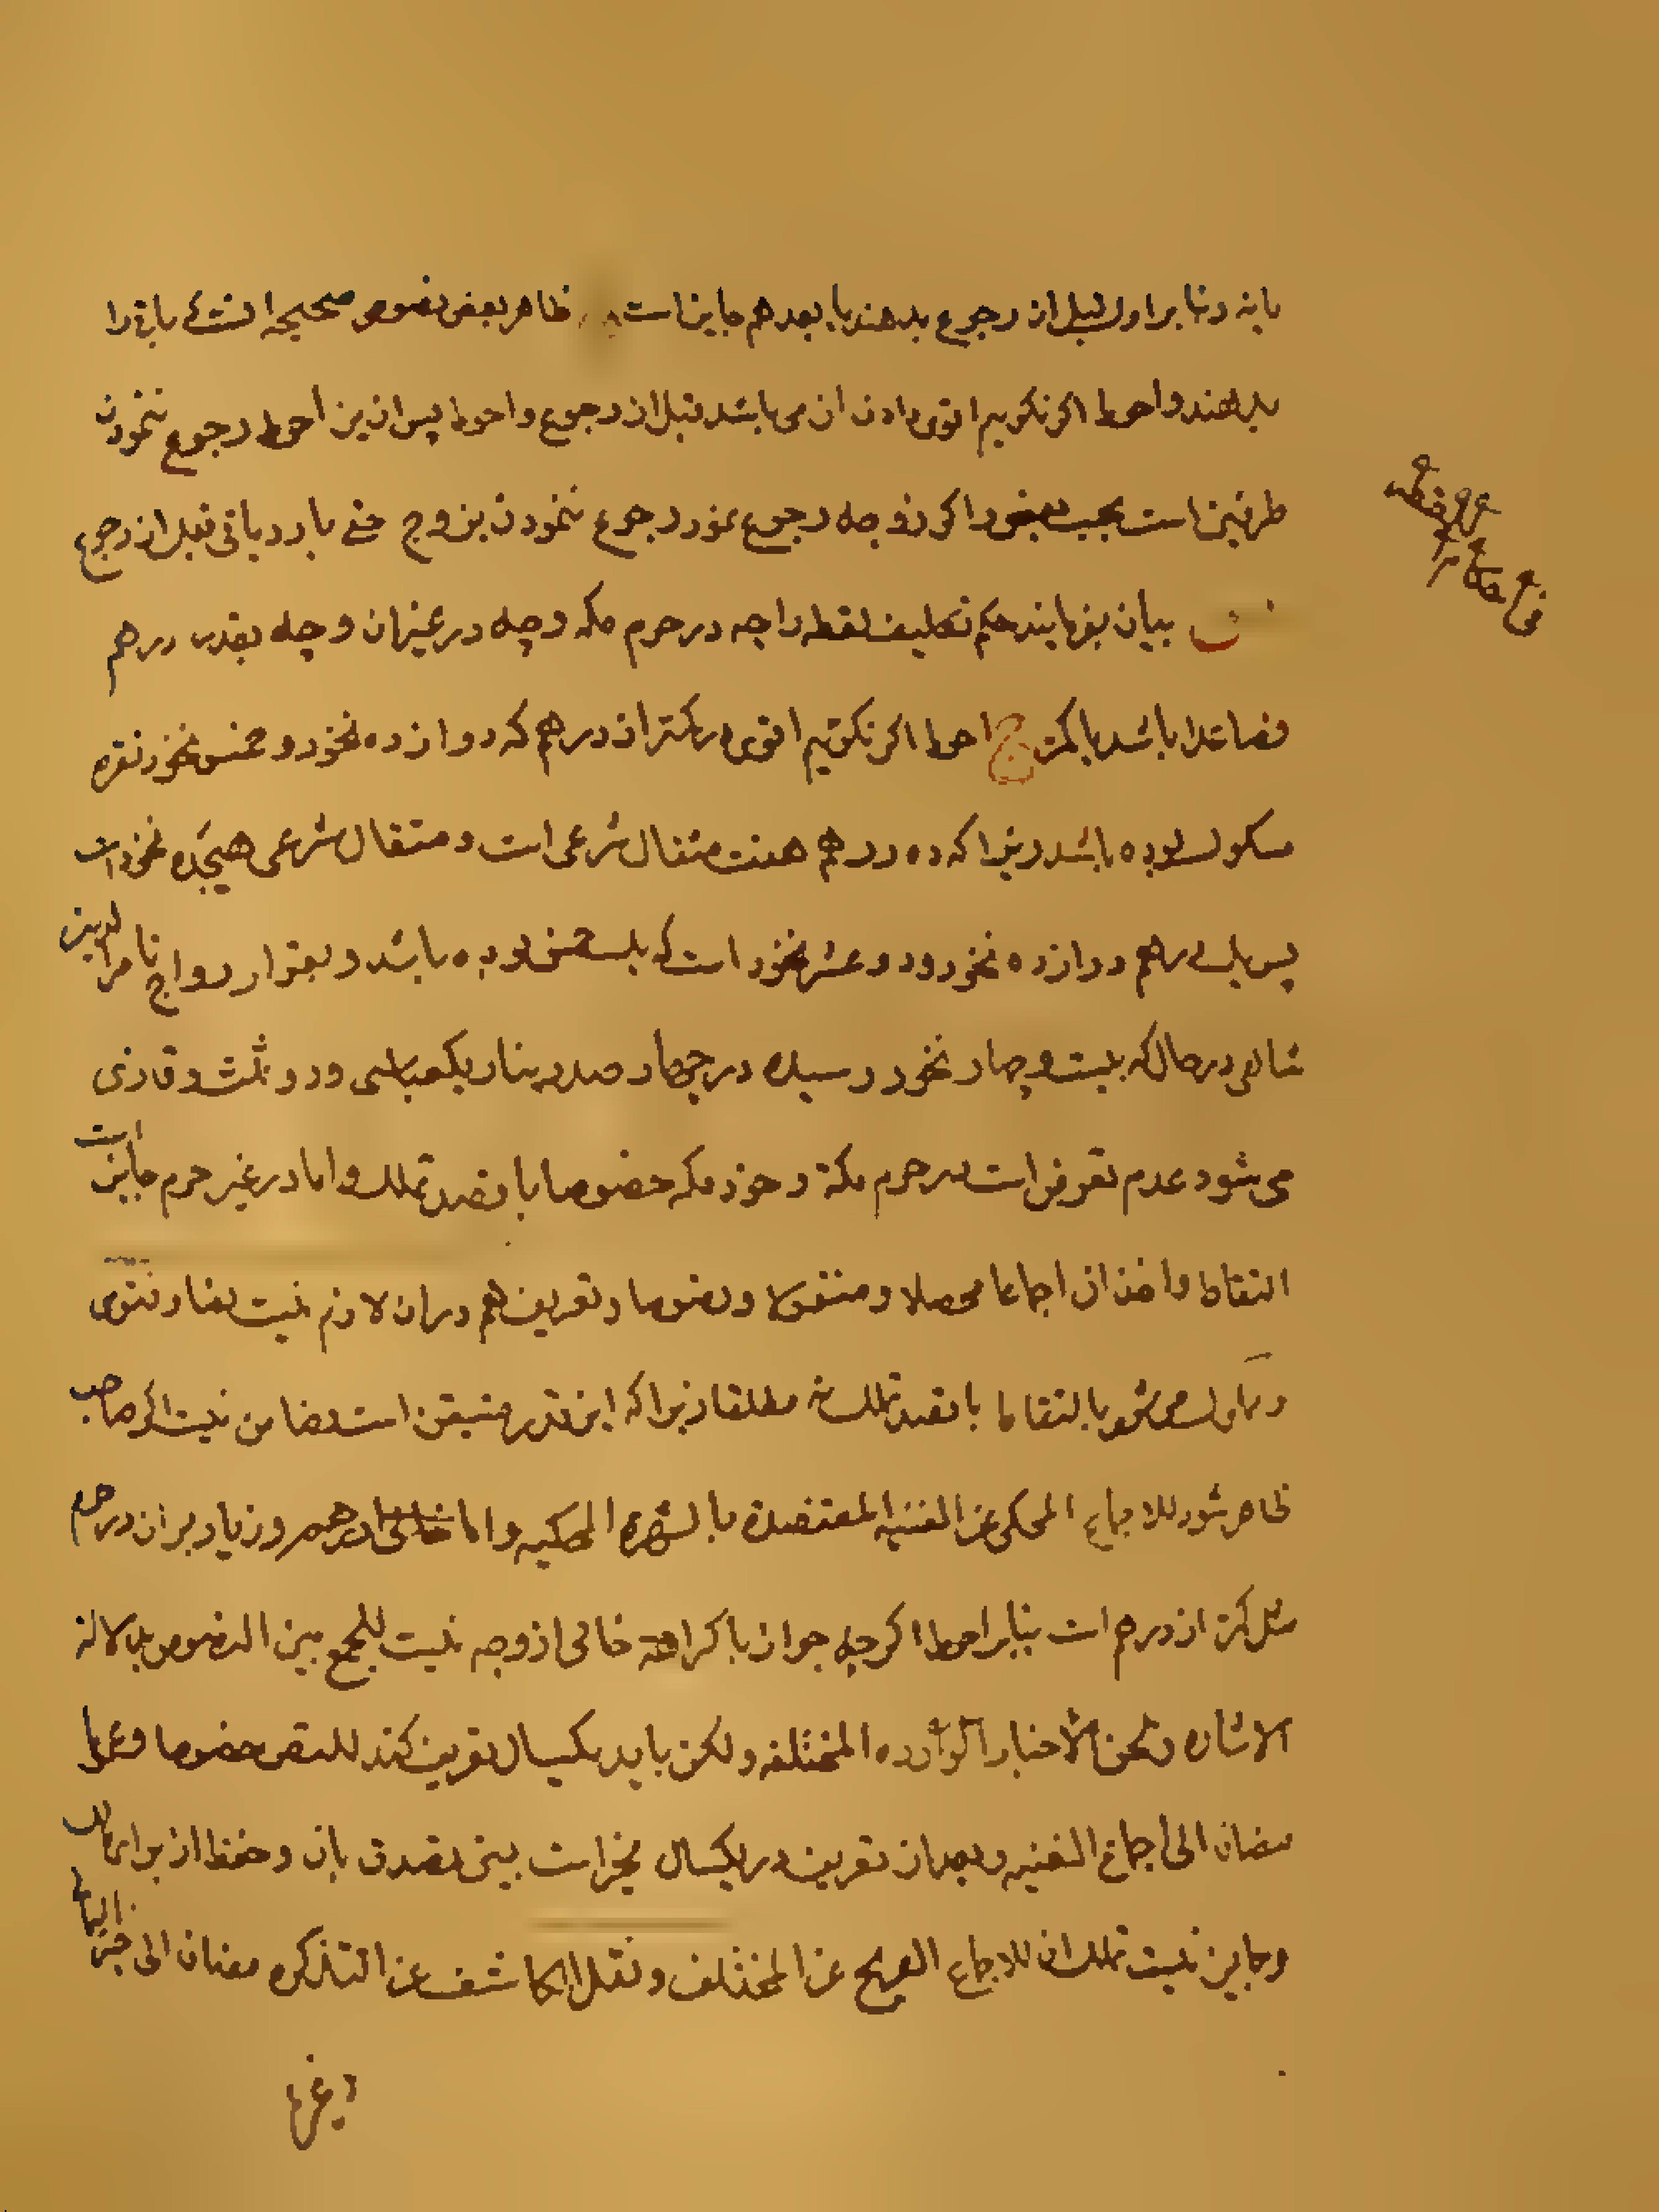 یا نه و بنا بر اول قبل از رجوع بدهند یا بعد هم جایز است ظاهر بعض نصوص صحیحه انست که باقی را
بدهند و احوط اگر نگوییم اقوی دادن ان می باشد قبل از رجوع و احوط پس از این احوط رجوع ننمودن
طرفین است بحسب بعض و اگر زوجه رجوع نمود رجوع ننمودن زوج در باقی قبل از رجوع
س بیان بفرمایند حکم تکلیف لقطه را چه در حرم مکه و چه در غیر ان و چه بقدر درهم
فصاعدا باشد یا کمتر ج احوط اگر نگوئیم اقوی در کمتر از درهم که دوازده نخود و خمس نخود نقره
مسکوک بوده باشد زیرا که ده درهم هفت مثقال شرعی است و مثقال شرعی هیجده نخود است
پس یک درهم دوازده نخود و دو عشر نخود است که یک خمس بوده باشد و بقرار رواج ناصرالدین
شاهی در حال که بیست و چهار نخود رسیده در چهار صد دینار یکعباسی و دو ثلث و قازی
می شود عدم تعرض است در حرم مکه و خود مکه خصوصا با قصد تملک و اما در غیر حرم جایز است
التقاط و اخذ ان اجماعا محصلا و منقولا و نصوصا و تعریف هم در ان لازم نیست نصا و فتوی
و مملوک می شود بالتقاط با قصد تملک نه مطلقا زیرا که این قدر متیقن است و ضامن نیست اگر صاحب
ظاهر شود للاجماع المحکی عن الغنیه المعتضدة بالشهرة المحکیه و اما درهم و زیاد بر ان در حرم
مثل کمتر از درهم است بنابر احوط اگر چه جواز با کراهة خالی از وجه نیست للجمع بین النصوص بدلالة
الاشاره و لحن الاخبار الوارده المختلفه و لکن باید یکسال تعریف کند للنص خصوصا و عموما
مضاف الی اجماع الغنیه و بعد از تعریف در یکسال مخیر است بین تصدق بان و حفظ از برای مالک
و جایز نیست تملک ان للاجماع الصریح عن المختلف و نقل الکاشف عن التذکره مضاف الی خبر الیمانی